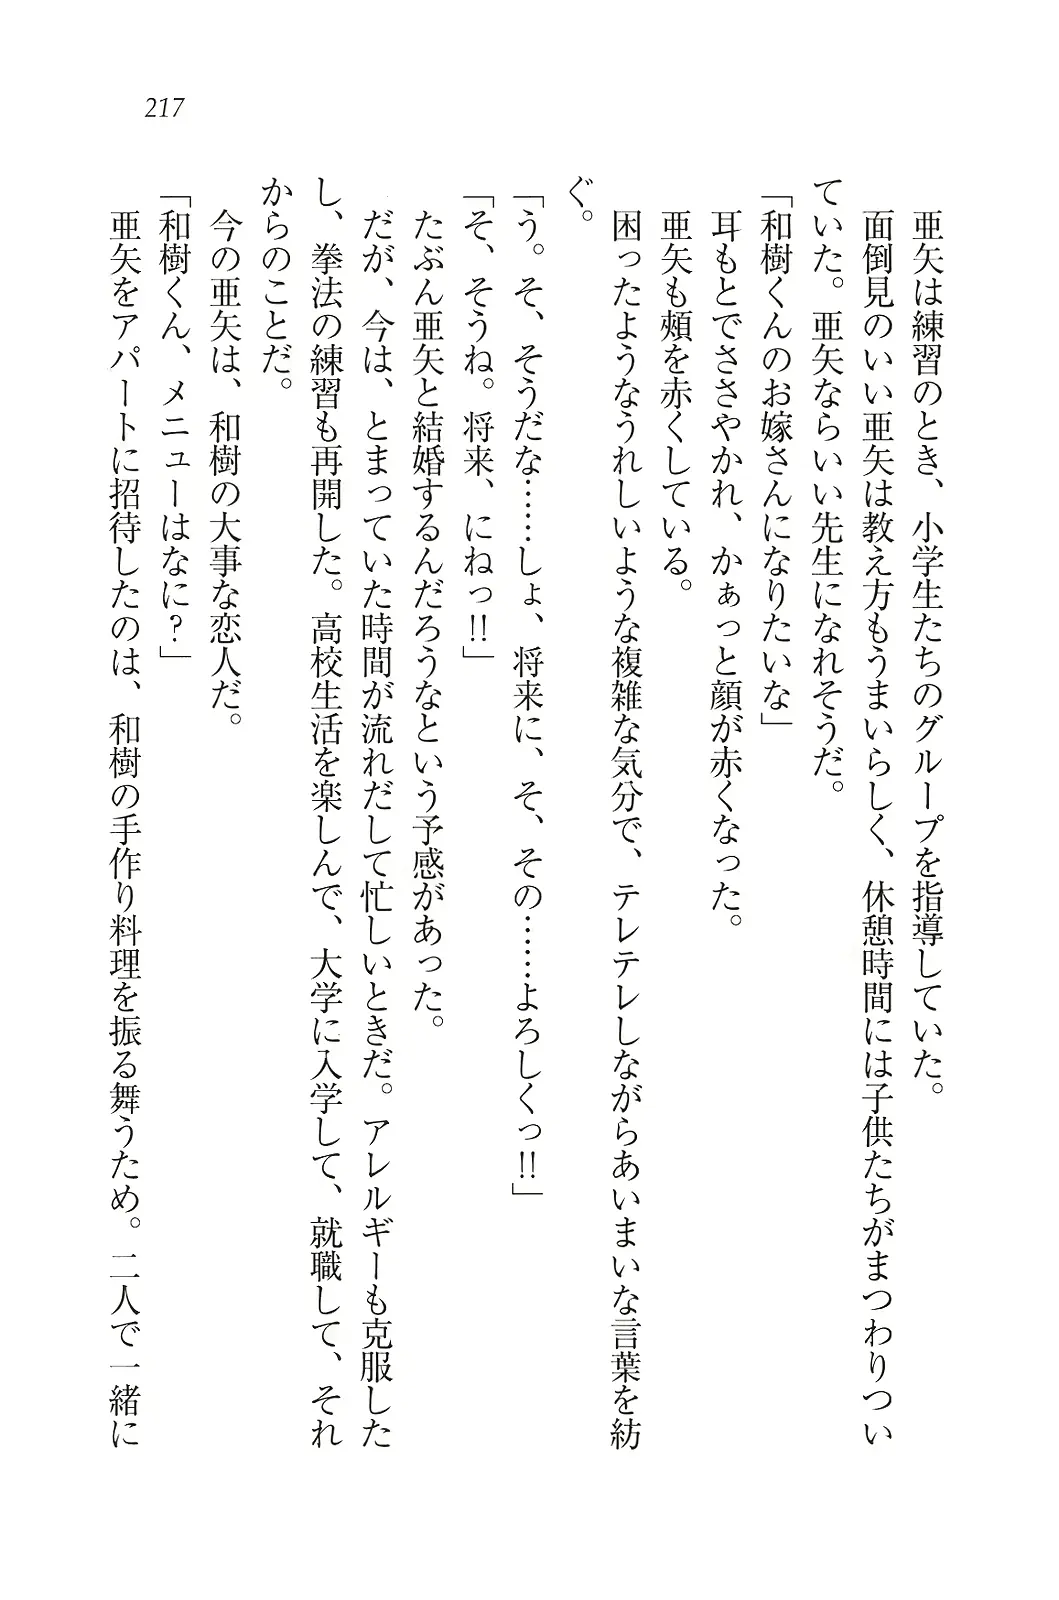 217
亜矢は練習のとき、小学生たちのグループを指導していた。
面倒見のいい亜矢は教え方もうまいらしく、休憩時間には子供たちがまつわりつい
ていた。亜矢ならいい先生になれそうだ。
「和樹くんのお嫁さんになりたいな」
耳もとでささやかれ、かぁっと顔が赤くなった。
亜矢も頰を赤くしている。
困ったようなうれしいような複雑な気分で、テレテレしながらあいまいな言葉を紡
ぐ。
「う。そ、そうだな……しょ、将来に、そ、その……よろしくっ!!」
「そ、そうね。将来、にねっ!!」
たぶん亜矢と結婚するんだろうなという予感があった。
だが、今は、とまっていた時間が流れだして忙しいときだ。アレルギーも克服した
し、拳法の練習も再開した。高校生活を楽しんで、大学に入学して、就職して、それ
からのことだ。
今の亜矢は、和樹の大事な恋人だ。
「和樹くん、メニューはなに?」
亜矢をアパートに招待したのは、和樹の手作り料理を振る舞うため。二人で一緒に